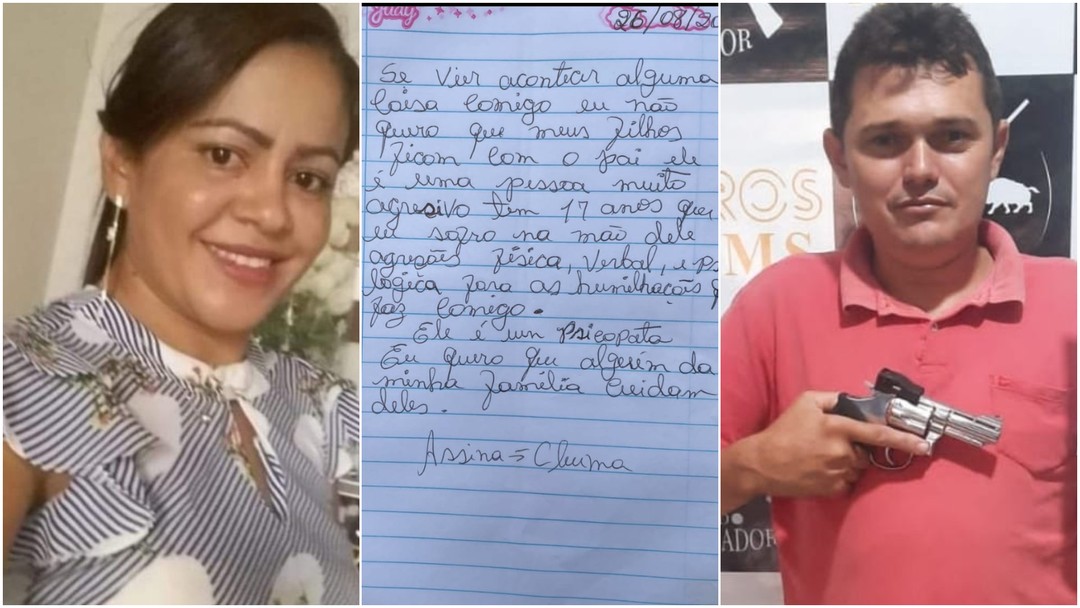 Judy
26/08/20
Se vier acontecer alguma
Coisa Comigo eu não
quero que meus filhos
ficam com o pai ele
é uma pessoa muito
agresivo tem 17 anos que
eu sofro na mão dele
agreções física, verbal, e ps
lógica fora as humilhações q
faz Comigo.
Ele é um Psicopata
Eu quero que algeém da
minha família Cuidam
deles.
Assina =
OR
ROS
MS
ADOR